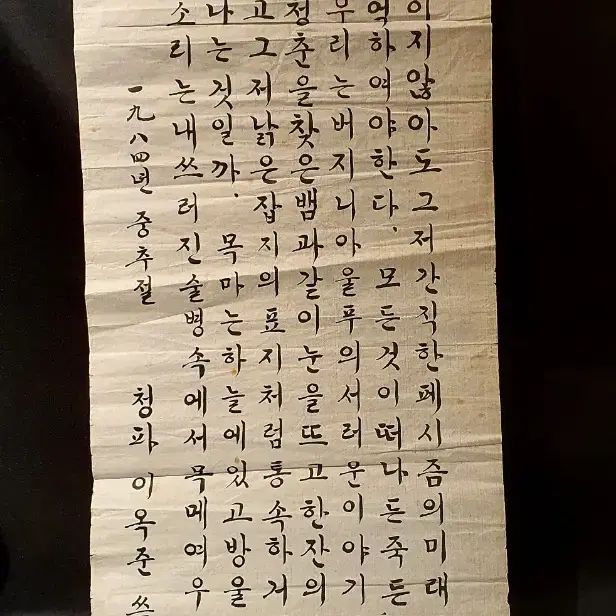 이지않아도그저간직한페시즘의미대
억하여야한다. 모든것이떠나든죽든
우리는버지니아울푸의서러운이야기
정춘을찾은뱀과갈이눈을뜨고한잔의
고그저낡은잡지의표지처럼통속하거
나는것일까. 목마는하늘에있고방울
소리는내쓰러진술병속에서목메여우
一九八四년 중추절 청파 이옥준 쓰